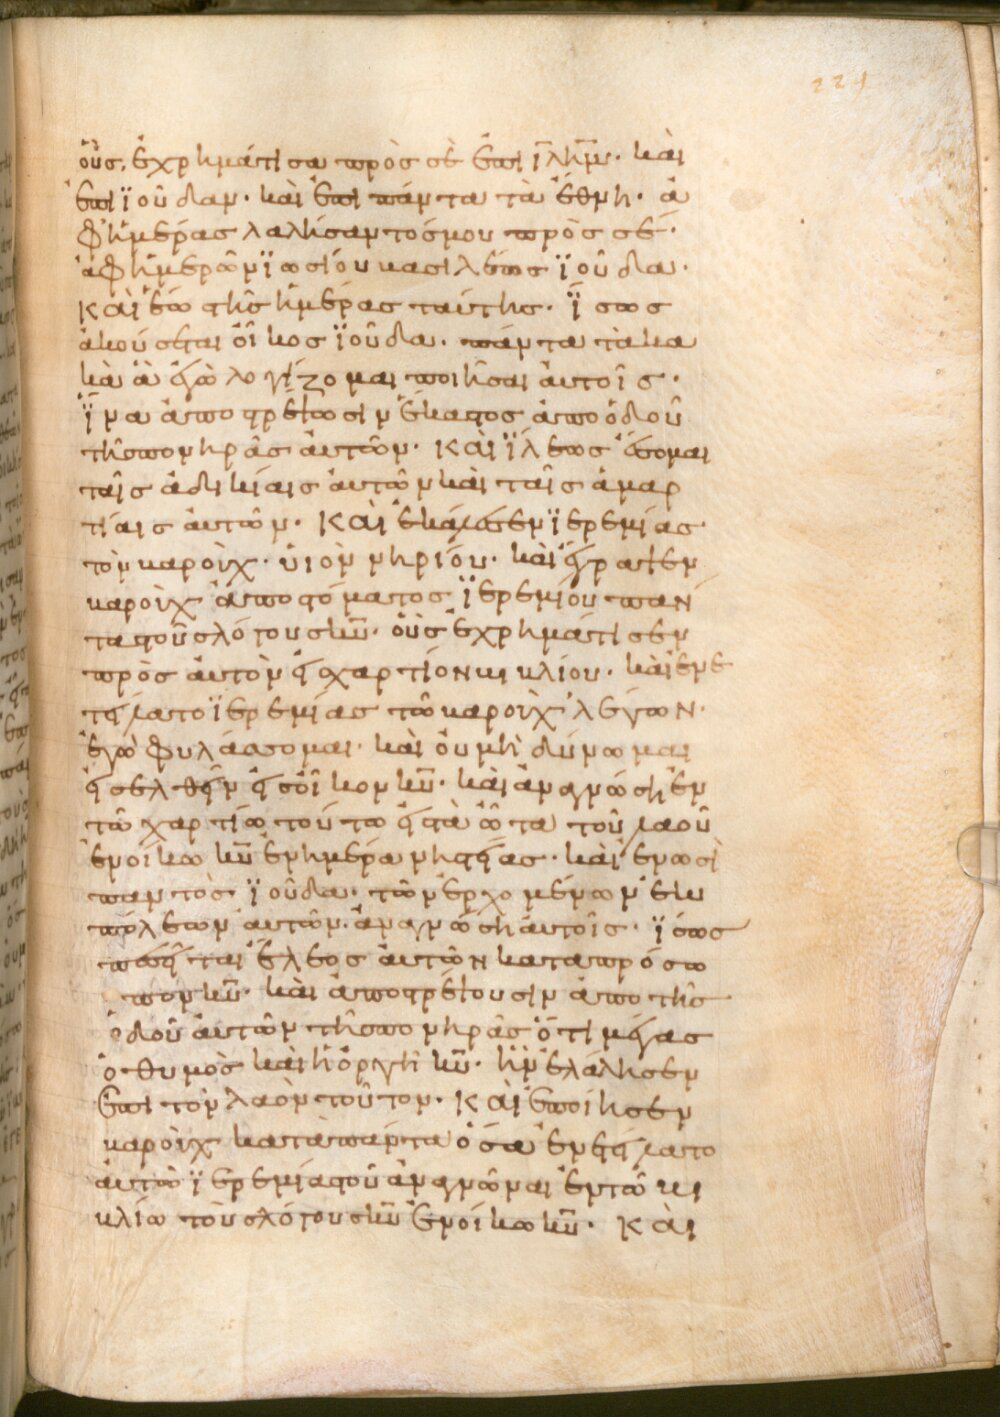 224
οὓς ἐχρημάτισα πρὸς σὲ ἐπὶ ἰλημ· καὶ
ἐπὶ ϊούδαν· καὶ ἐπὶ πάντα τὰ ἔθνη· ἀ
φ' ἡμέρας λαλήσαντόσ μου πρὸς σέ·
ἀφ' ἡμερῶν ϊωσίου βασιλέως ϊούδα·
καὶ ἕως τῆς ἡμέρας ταύτης· ἴσως
ἀκούσεται οἶκος ϊούδα· πάντα τὰ κα
κὰ ἃ ἐγὼ λογίζομαι ποιῆσαι αὐτοῖς·
ἵνα ἀποστρέψωσιν ἕκαστος ἀπὸ ὁδοῦ
τῆς πονηρᾶς αὐτῶν· καὶ ἵλεως ἔσομαι
ταῖς ἀδικίαις αὐτῶν καὶ ταῖς ἁμαρ
τίαις αὐτῶν· καὶ ἐκάλεσεν ϊερεμίας
τὸν βαροὺχ· υἱὸν νηρίου· καὶ ἔγραψεν
βαροὺχ ἀπὸ στόματος ϊερεμίου παν
τας τοὺς λόγους κυ· οὓς ἐχρημάτισεν
πρὸς αὐτὸν εἰς χαρτίον βιβλίου· καὶ ἐνε
τείλατο ϊερεμίας τῶ βαροὺχ λέγων·
ἐγὼ φυλάσσομαι· καὶ οὐ μὴ δύνωμαι
εἰσελθεῖν εἰς οἶκον κυ· καὶ ἀναγνώση ἐν
τῶ χαρτίω τούτω εἰς τὰ ὦτα τοῦ λαοῦ
ἐν οἴκω κυ ἐν ἡμέρα νηστείας· καὶ ἐν ὠσὶ
παντὸς ϊούδα· τῶν ἐρχομένων ἐκ
πόλεων αὐτῶν· ἀναγνώση αὐτοῖς· ἴσως
πεσεῖται ἔλεος αὐτῶν κατα πρόσω
πον κυ· καὶ ἀποστρέψουσιν ἀπὸ τῆς
ὁδοῦ αὐτῶν τῆς πονηρᾶς ὅτι μέγας
ὁ θυμὸς καὶ ἡ ὀργὴ κυ· ἣν ἐλάλησεν
ἐπὶ τὸν λαὸν τοῦτον· καὶ ἐποίησεν
βαροὺχ κατὰ πάντα ὅσα ἐνετείλατο
αὐτῶ ϊερεμίας τοῦ ἀναγνῶναι ἐν τῶ βι
βλίω τοὺς λόγους κυ ἐν οἴκω κυ· καὶ